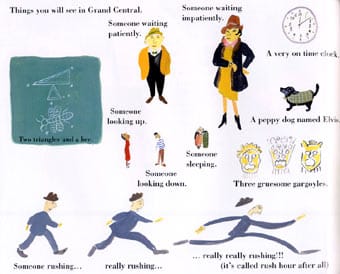 Things you will see in Grand Central.
Someone waiting
patiently.
Someone waiting
impatiently.
A very on time clock.
Someone
looking up.
A peppy dog named Elvis.
Two triangles and a bee.
Someone
sleeping.
Someone
looking down.
Three gruesome gargoyles.
Someone rushing...
really rushing...
... really really rushing!!!
(it's called rush hour after all)